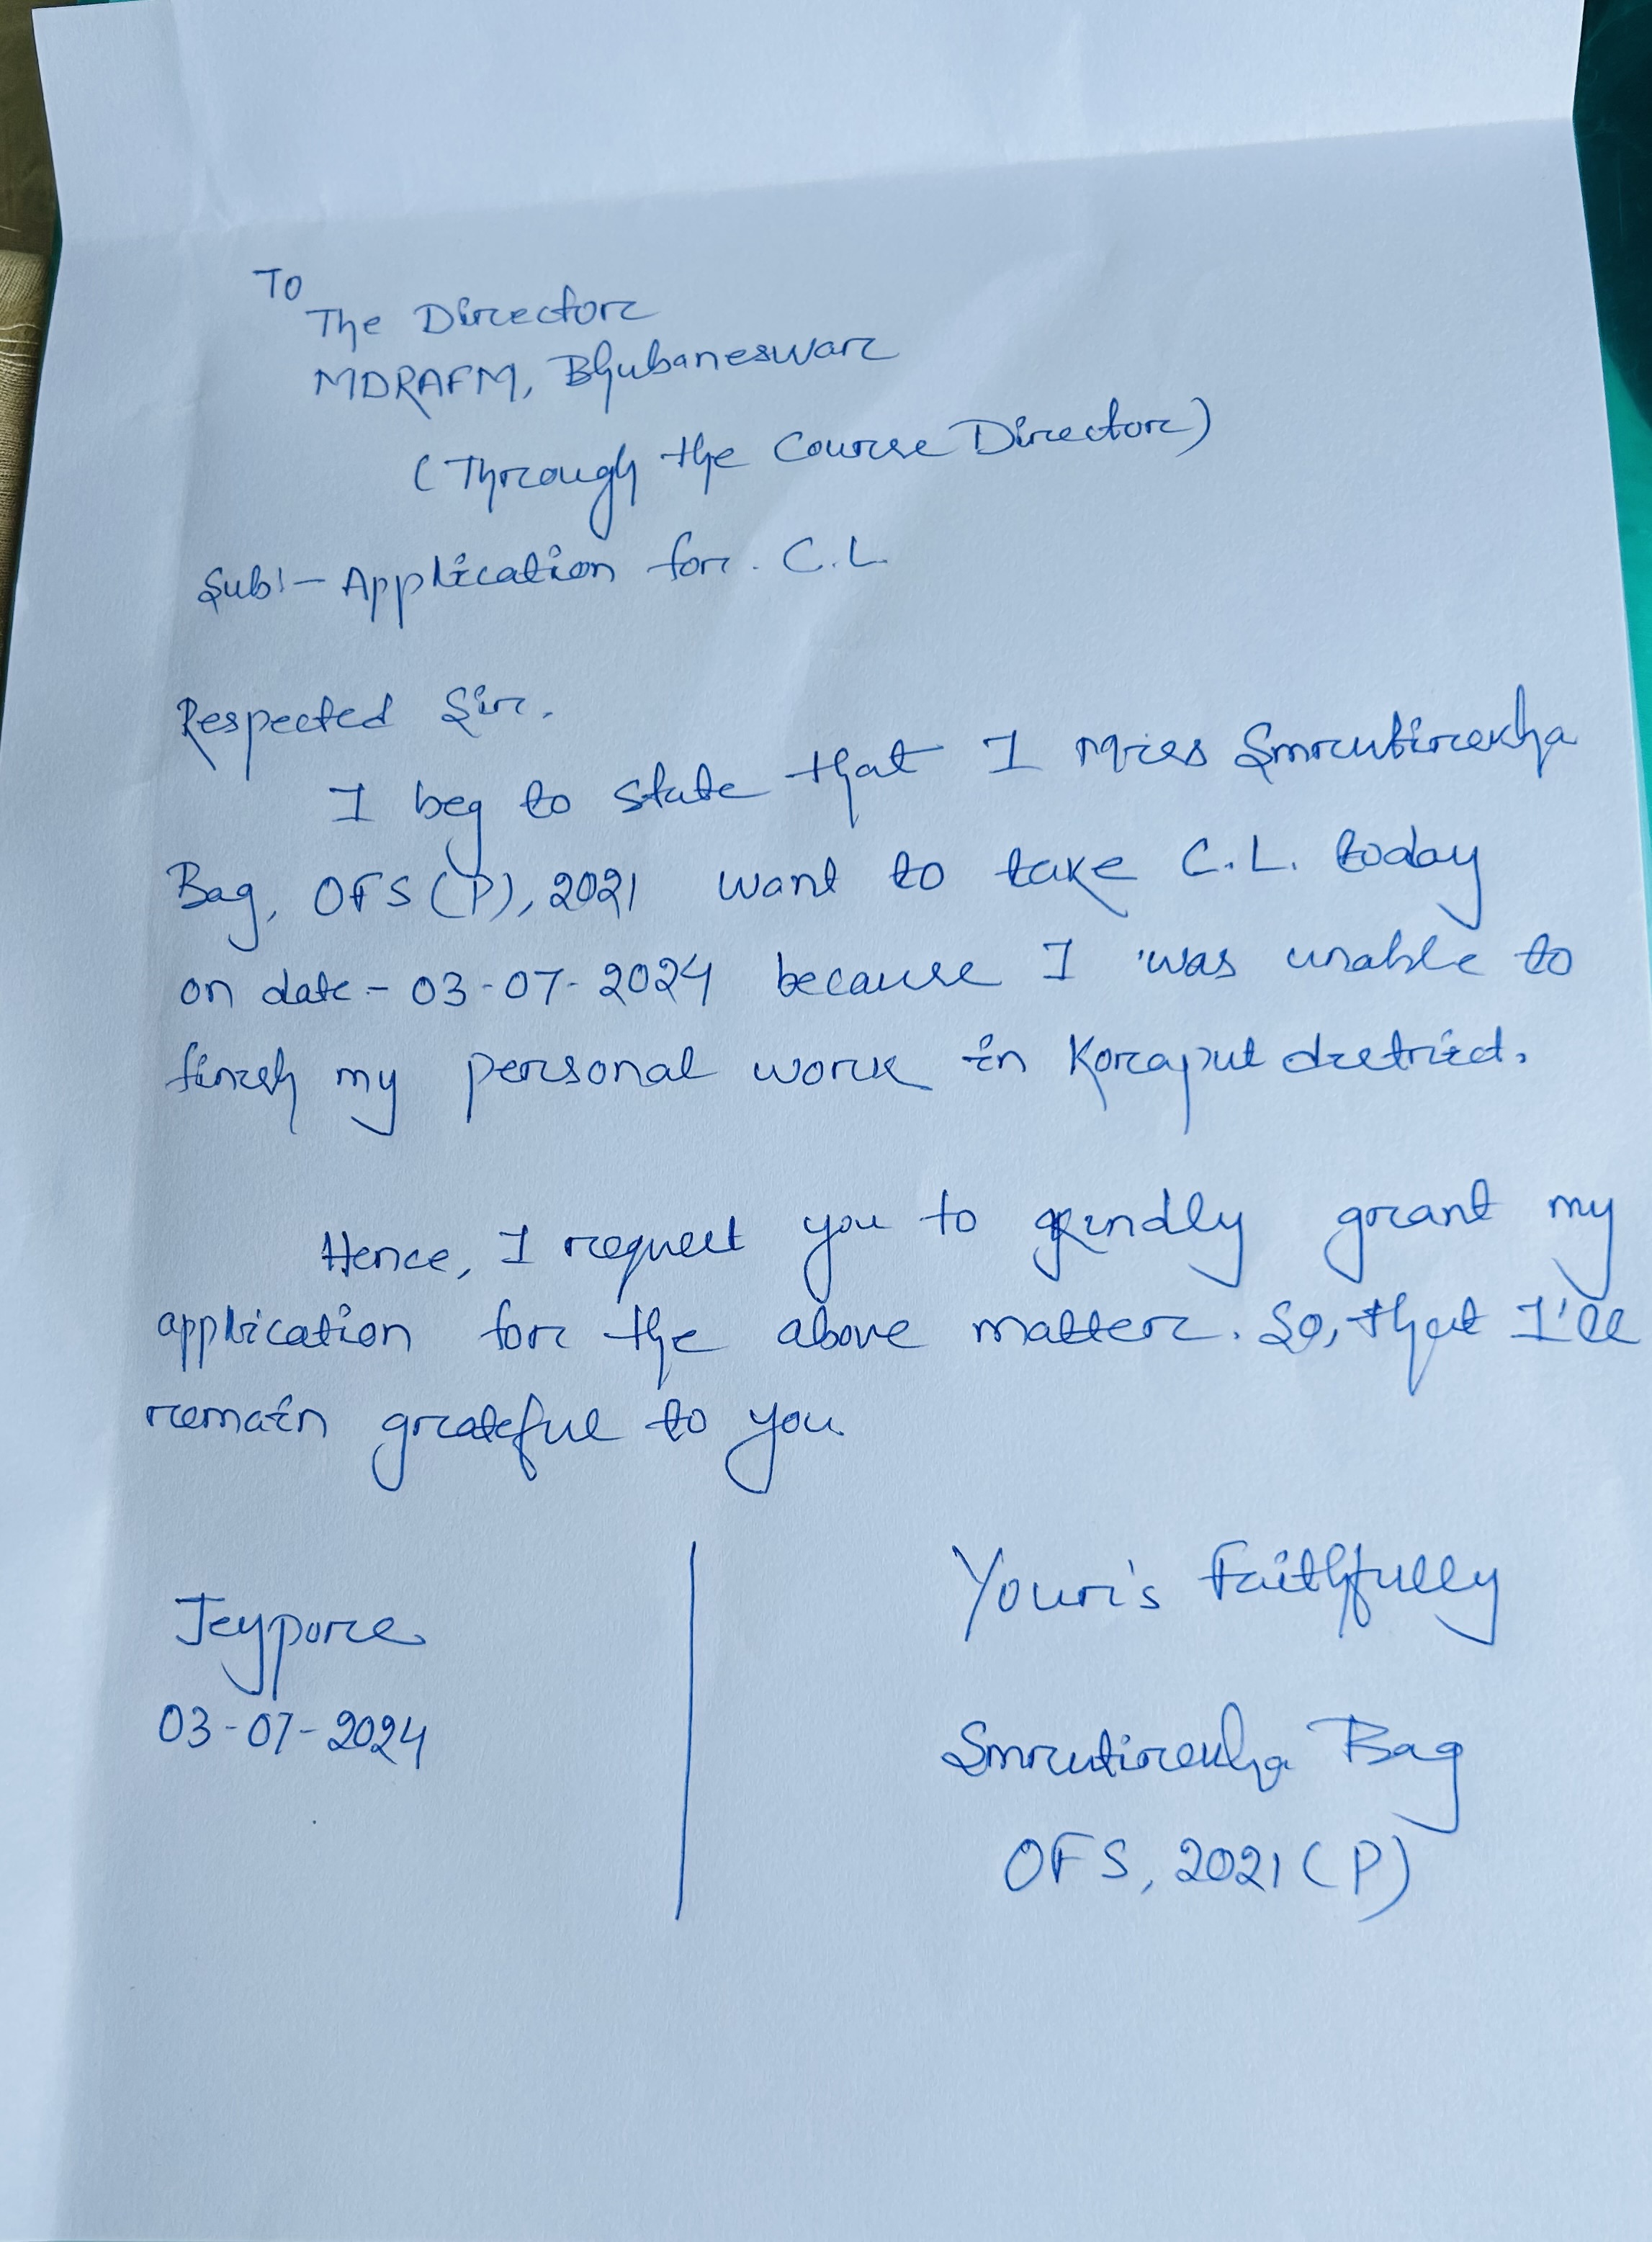 To
The Director
MDRAFM, Bhubaneswar
(Through the Course Director)
Sub:- Application for. C.L
Respected Sir,
I beg to state that I Miss Smrutirekha
Bag, OFS (P), 2021 want to take C.L. today
on date - 03-07-2024 because I was unable to
finish my personal work in Koraput district.
Hence, I request you to kindly grant my
application for the above matter. So, that I'll
remain grateful to you.
Jeypore
03-07-2024
Your's Faithfully
Smrutirekha Bag
OFS, 2021 (P)